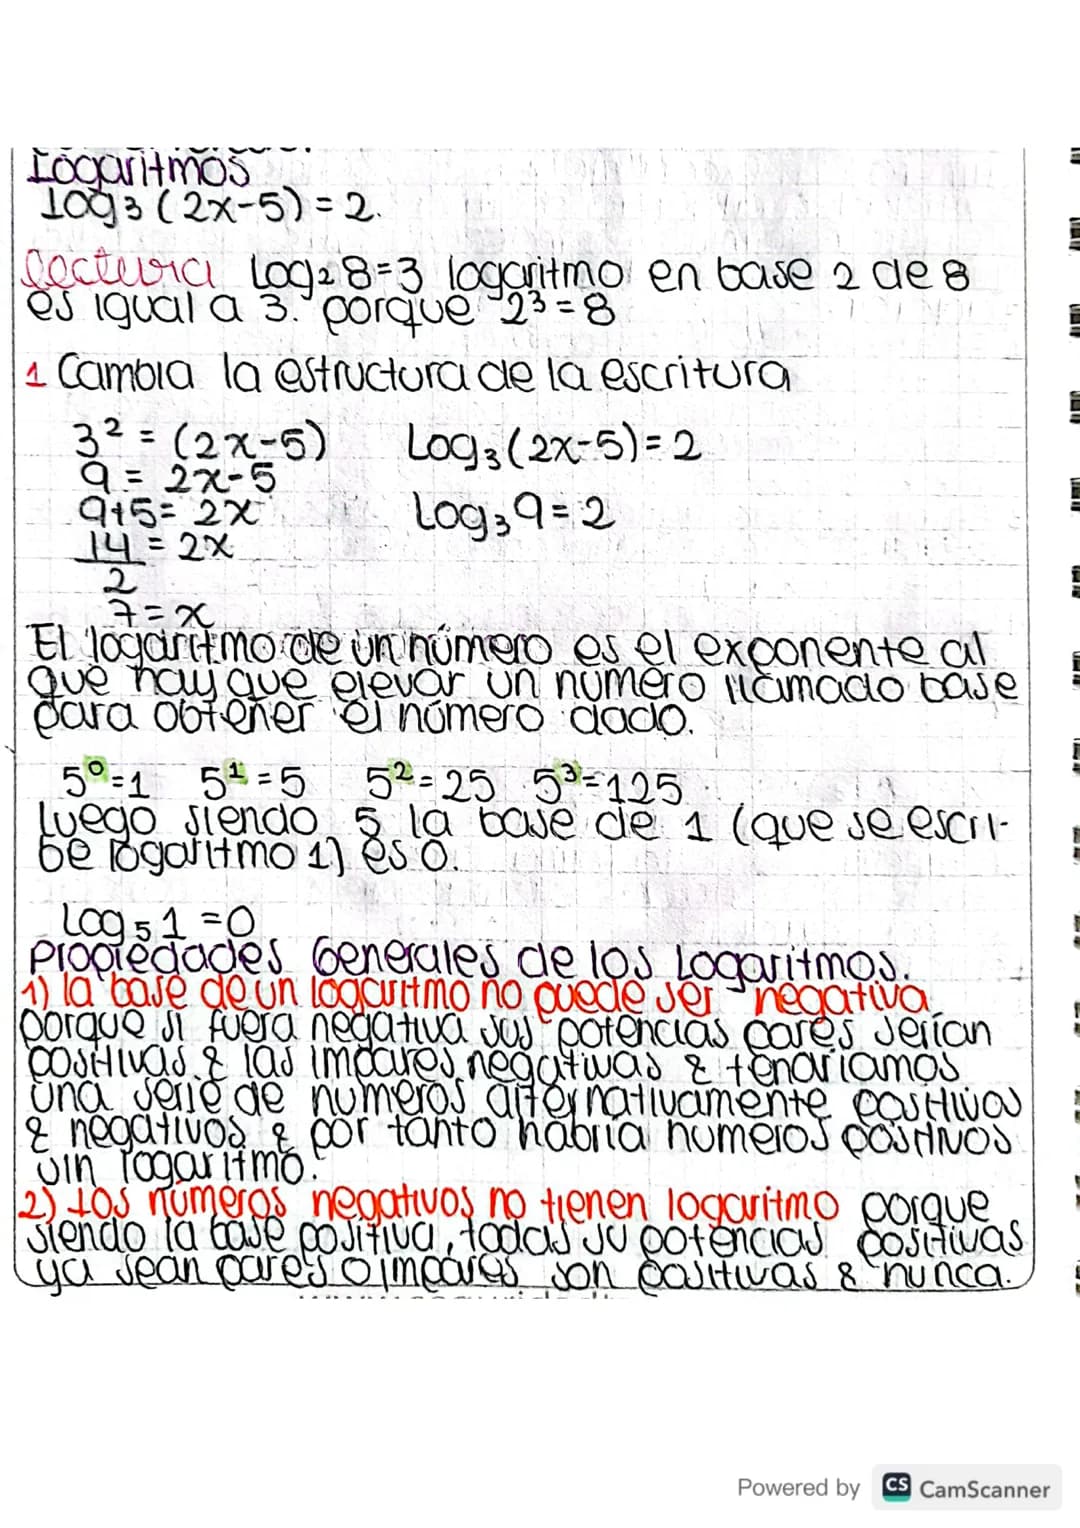 Logaritmos
log₃(2x-5)=2.
lectura Log₂8=3 logaritmo en base 2 de 8
es igual a 3. porque 2³=8
1 Cambia la estructura de la escritura
3² = (2x-5) Log₃(2x-5)=2
9 = 2x-5
9+5= 2x Log₃9=2
14 = 2x
2
7=x
El logaritmo de un número es el exponente al
que hay que elevar un número llamado base
para obtener el número dado.
5⁰=1 5¹=5 5²=25 5³=125
luego siendo 5 la base de 1 (que se escri-
be logaritmo 1) es 0.
Log₅1=0
Propiedades Generales de los Logaritmos.
1) la base de un logaritmo no puede ser negativa
porque si fuera negativa sus potencias pares serían
positivas & las impares negativas & tendríamos
una serie de numeros alternativamente positivos
& negativos & por tanto habria numeros positivos
sin logaritmo.
2) los números negativos no tienen logaritmo porque
siendo la base positiva, todas su potencias positivas
ya sean pares o impares son positivas & nunca.
Powered by CS CamScanner